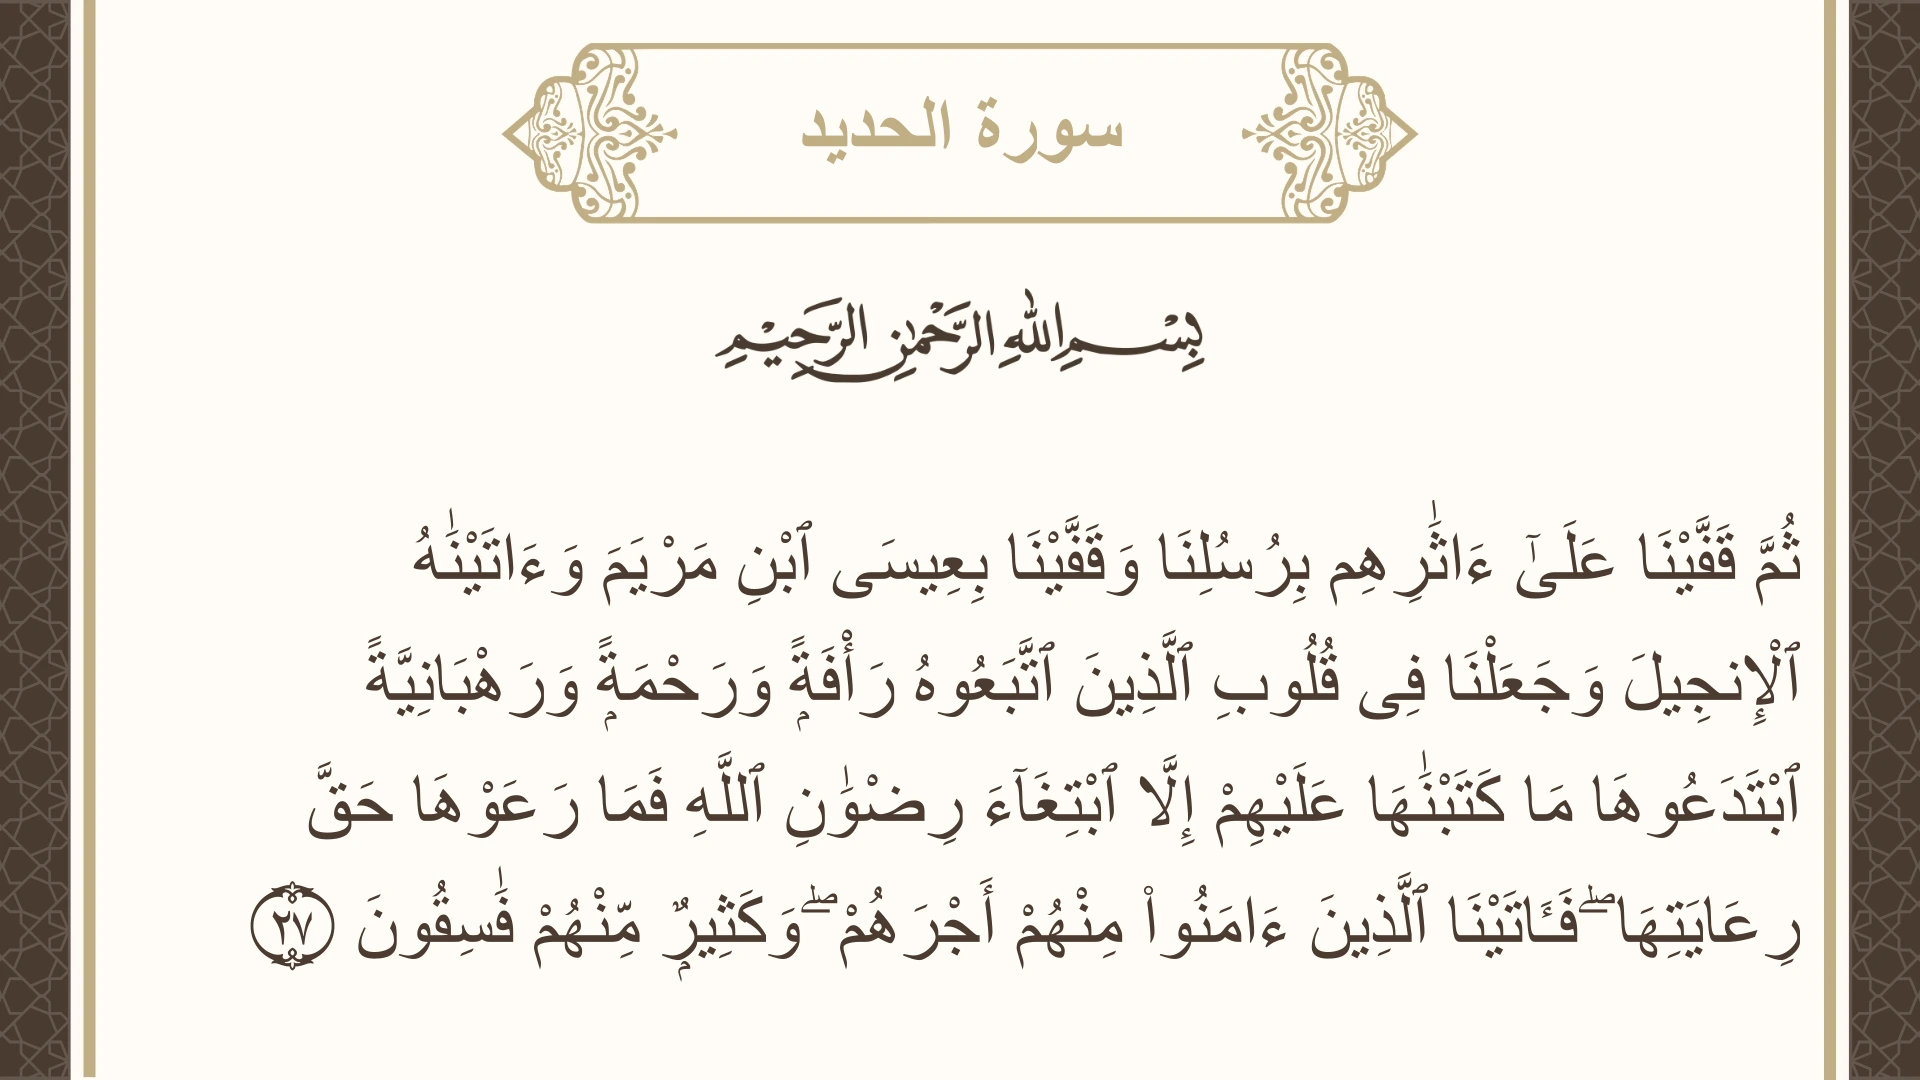 سورة الحديد
بِسْمِ اللهِ الرَّحْمٰنِ الرَّحِيْمِ
ثُمَّ قَفَّيْنَا عَلَىٰٓ ءَاثَٰرِهِم بِرُسُلِنَا وَقَفَّيْنَا بِعِيسَى ٱبْنِ مَرْيَمَ وَءَاتَيْنَٰهُ
ٱلْإِنجِيلَ وَجَعَلْنَا فِى قُلُوبِ ٱلَّذِينَ ٱتَّبَعُوهُ رَأْفَةًۭ وَرَحْمَةًۭ وَرَهْبَانِيَّةً
ٱبْتَدَعُوهَا مَا كَتَبْنَٰهَا عَلَيْهِمْ إِلَّا ٱبْتِغَآءَ رِضْوَٰنِ ٱللَّهِ فَمَا رَعَوْهَا حَقَّ
رِعَايَتِهَا ۖ فَـَٔاتَيْنَا ٱلَّذِينَ ءَامَنُوا۟ مِنْهُمْ أَجْرَهُمْ ۖ وَكَثِيرٌۭ مِّنْهُمْ فَٰسِقُونَ ٢٧